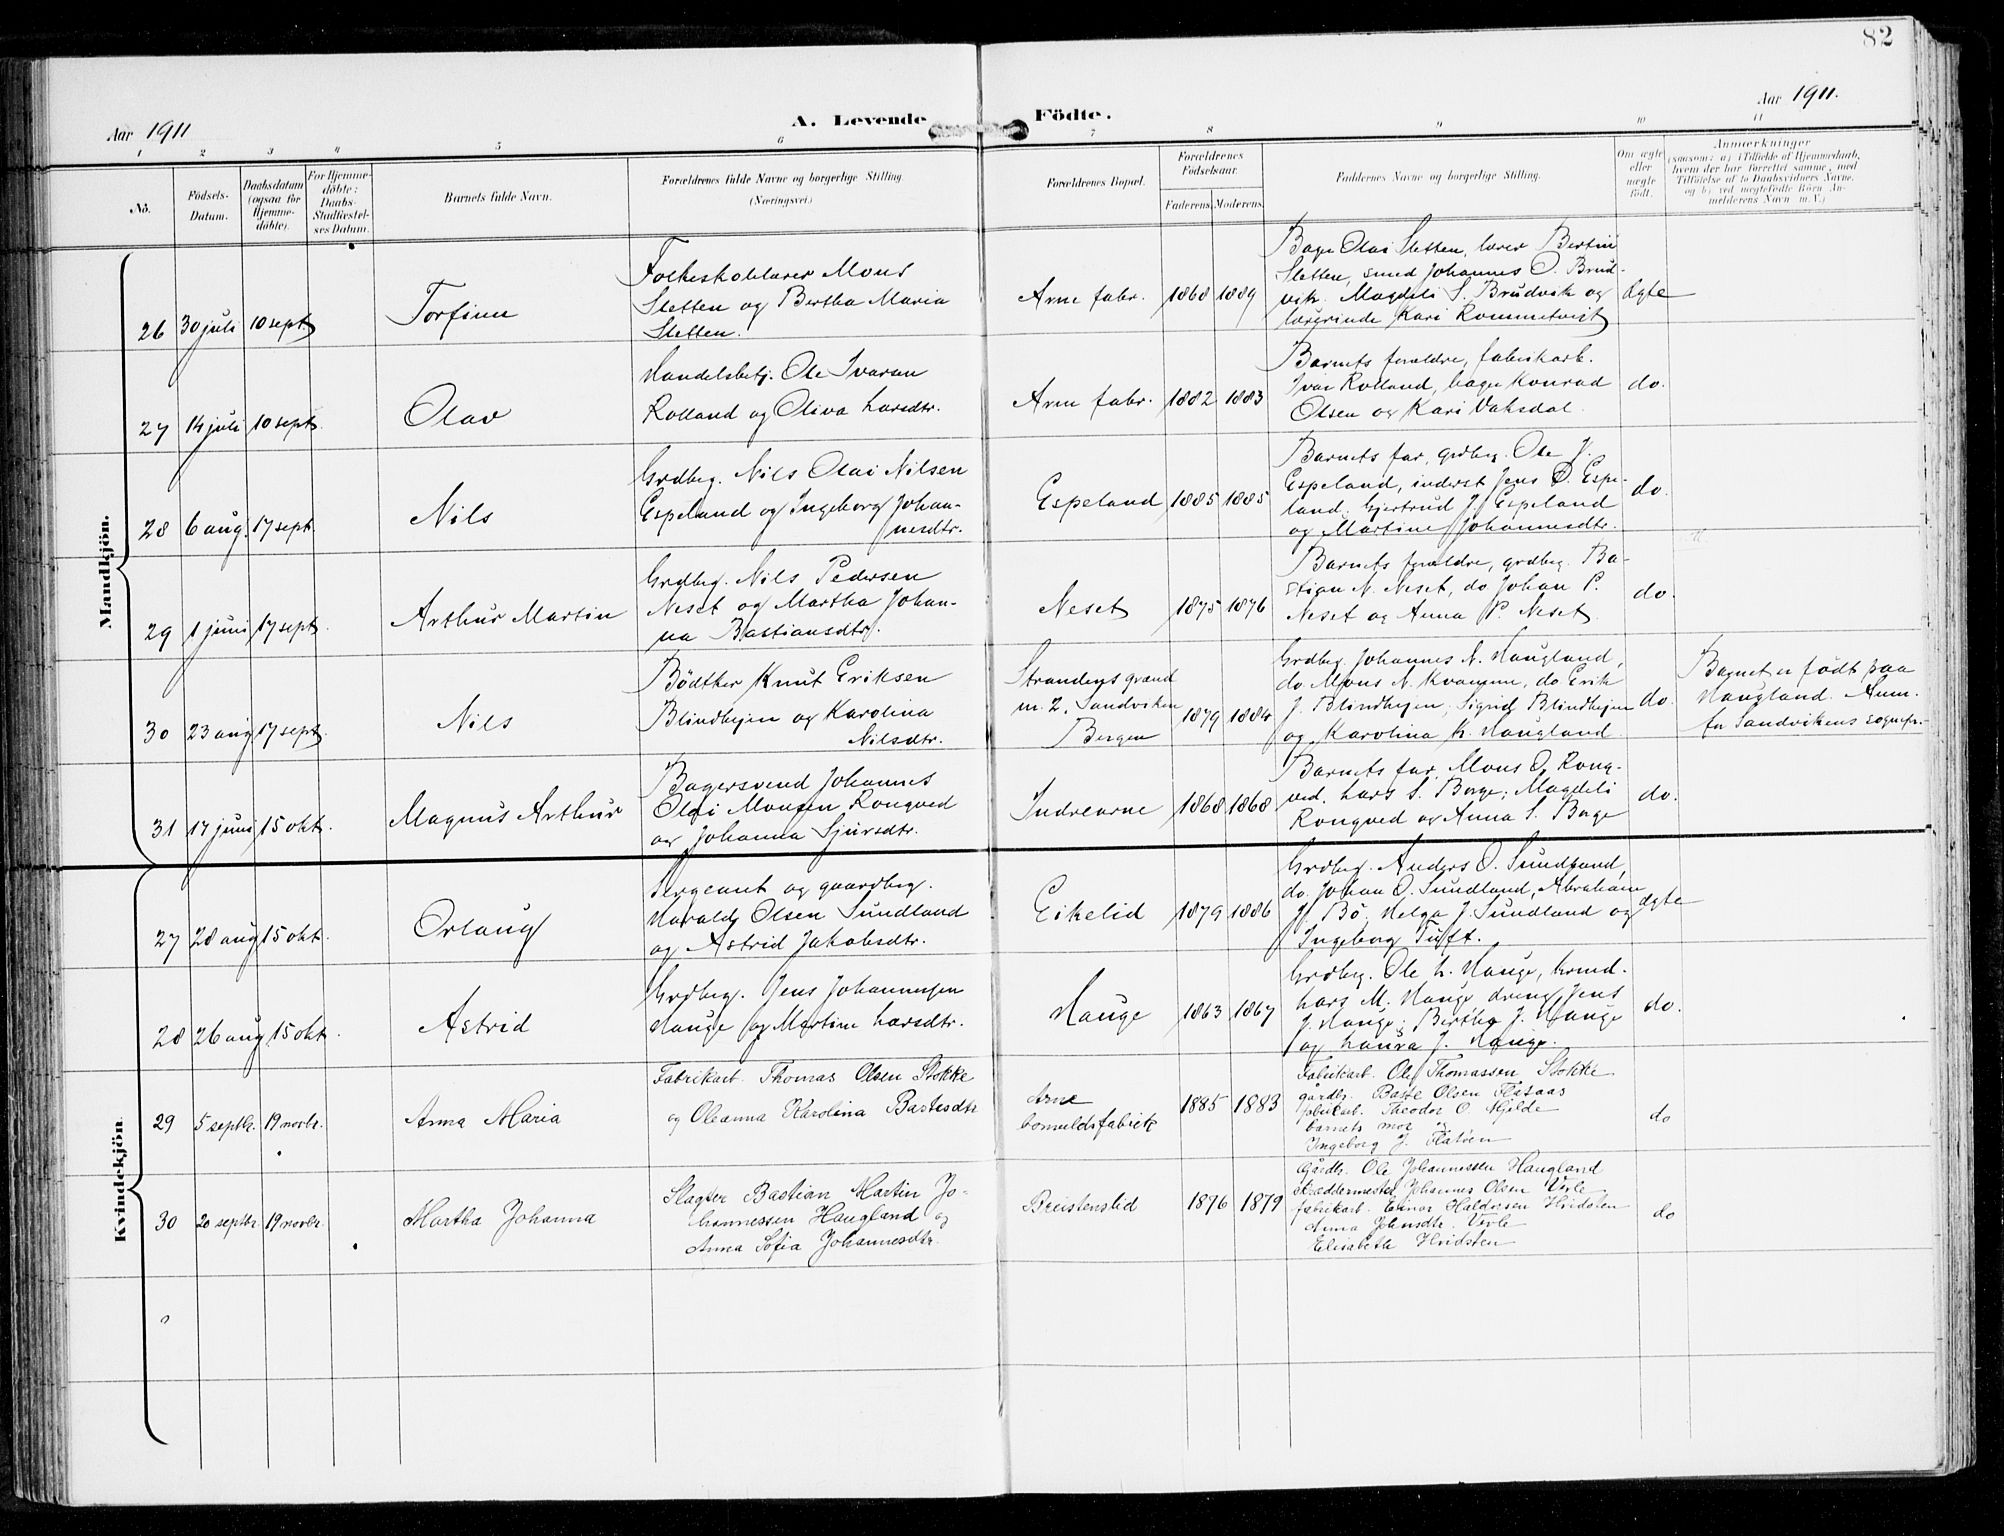 82
Aar 1911
A. Levende
Födte.
Aar 1911.
1 2 3 4 5 6 7 8 9 10 11
No.
Födsels-
Datum.
Daabsdatum
(ogsaa for
Hjemme-
döbte).
For Hjemme-
döbte:
Daabs-
Stadfæstel-
ses Datum.
Barnets fulde Navn.
Forældrenes fulde Navne og borgerlige Stilling.
(Næringsvei)
Forældrenes Bopæl.
Forældrenes
Födselsaar.
Faderens. Moderens.
Faddernes Navne og borgerlige Stilling.
Om ægte
eller
uægte
födt.
Anmærkninger
(saasom: a) i Tilfælde af Hjemmedaab,
hvem der har forrettet samme, med
Tilföielse af to Daabsvidners Navne,
og b) ved uægtefödte Börn An-
melderens Navn m. V.)
Mandkjön.
26 30 juli 10 sept.
Torfinn
Folkeskolelærer Mons
Sletten og Bertha Maria
Sletten.
Arne fabr. 1868 1889
Bager Olai Sletten, lærer Bertin
Sletten, smed Johannes O. Brud-
vik. Magdeli S. Brudvik og
lærerinde Kari Rommetveit
ægte
27 14 juli 10 sept.
Olav
Handelsbetj. Ole Ivarsen
Rolland og Oliva Larsdtr.
Arne fabr. 1882 1883
Barnets forældre, fabrikarb.
Ivar Rolland, bager Konrad
Olsen og Kari Vaksdal.
do.
28 6 aug. 17 sept.
Nils
Grdbrg. Nils Olai Nilsen
Espeland og Ingeborg Johan-
nesdtr.
Espeland 1885 1885
Barnets far, grdbrg. Ole J.
Espeland, inderst Jens O. Espe-
land, Gjertrud J. Espeland
og Martine Johannesdtr.
do.
29 1 juni 17 sept.
Arthur Martin
Grdbrg. Nils Pedersen
Neset og Martha Johan-
na Bastiansdtr.
Neset 1875 1876
Barnets forældre, grdbrg. Ba-
stian N. Neset, do Johan P.
Neset og Anna P. Neset.
do.
30 23 aug 17 sept.
Nils
Bödtker Knut Eriksen
Blindhejen og Karolina
Nilsdtr.
Strandens grænd
nr. 2. Sandviken
Bergen
1879 1884
Grdbrg. Johannes N. Haugland,
do. Mons N. Kvamme, do Erik
J. Blindhejen; Sigrid Blindhejen
og Karolina K. Haugland
do.
Barnet er födt paa
Haugland. Anm.
fra Sandvikens sognepr.
31 17 juni 15 okt.
Magnus Arthur
Bagersvend Johannes
Olai Monsen Rongved
og Johanna Sjursdtr.
Indrearne 1868 1868
Barnets far, Mons O. Rong-
ved, Lars S. Borge; Magdeli
Rongved og Anna S. Borge
do.
Kvindekjön.
27 28 aug 15 okt.
Orlaug
Sergeant og gaardbrg.
Harald Olsen Sundland
og Astrid Jakobsdtr.
Eikelid 1879 1886
Grdbrg. Anders O. Sundland,
do. Johan O. Sundland, Abraham
H. Bö, Helga J. Sundland og
Ingeborg Tuft.
ægte
28 26 aug 15 okt.
Astrid
Grdbrg. Jens Johannesen
Hauge og Martine Larsdtr.
Hauge 1863 1867
Grdbrg. Ole L. Hauge,
Lars M. Hauge dreng Jens
J. Hauge; Bertha J. Hauge
og Laura J. Hauge.
do.
29 5 septbr. 19 novbr.
Anna Maria
Fabrikarb. Thomas Olsen Stokke
og Oleanna Karolina Bastesdtr
Arne
bomuldsfabrik
1885 1883
Fabrikarb. Ole Thomassen Stokke
gårdbr. Baste Olsen Flataas
fabrikarb. Theodor O. Mjelde
barnets mor og
Ingeborg J. Flatöen
do
30 20 septbr. 19 novbr.
Martha Johanna
Slagter Bastian Martin Jo-
hannessen Haugland og
Anna Sofia Johannesdtr.
Breistenslid 1876 1879
Gårdbr. Ole Johannessen Haugland
skræddermester Johannes Olsen Virle
fabrikarb. Einar Haldorsen Hvidsten
Anna Johnsdtr. Virle
Elisabeth Hvidsten
do